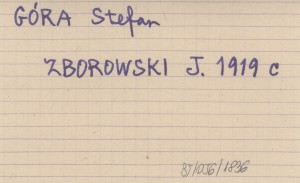 GÓRA Stefan
ZBOROWSKI J. 1919 c
87/056/1836